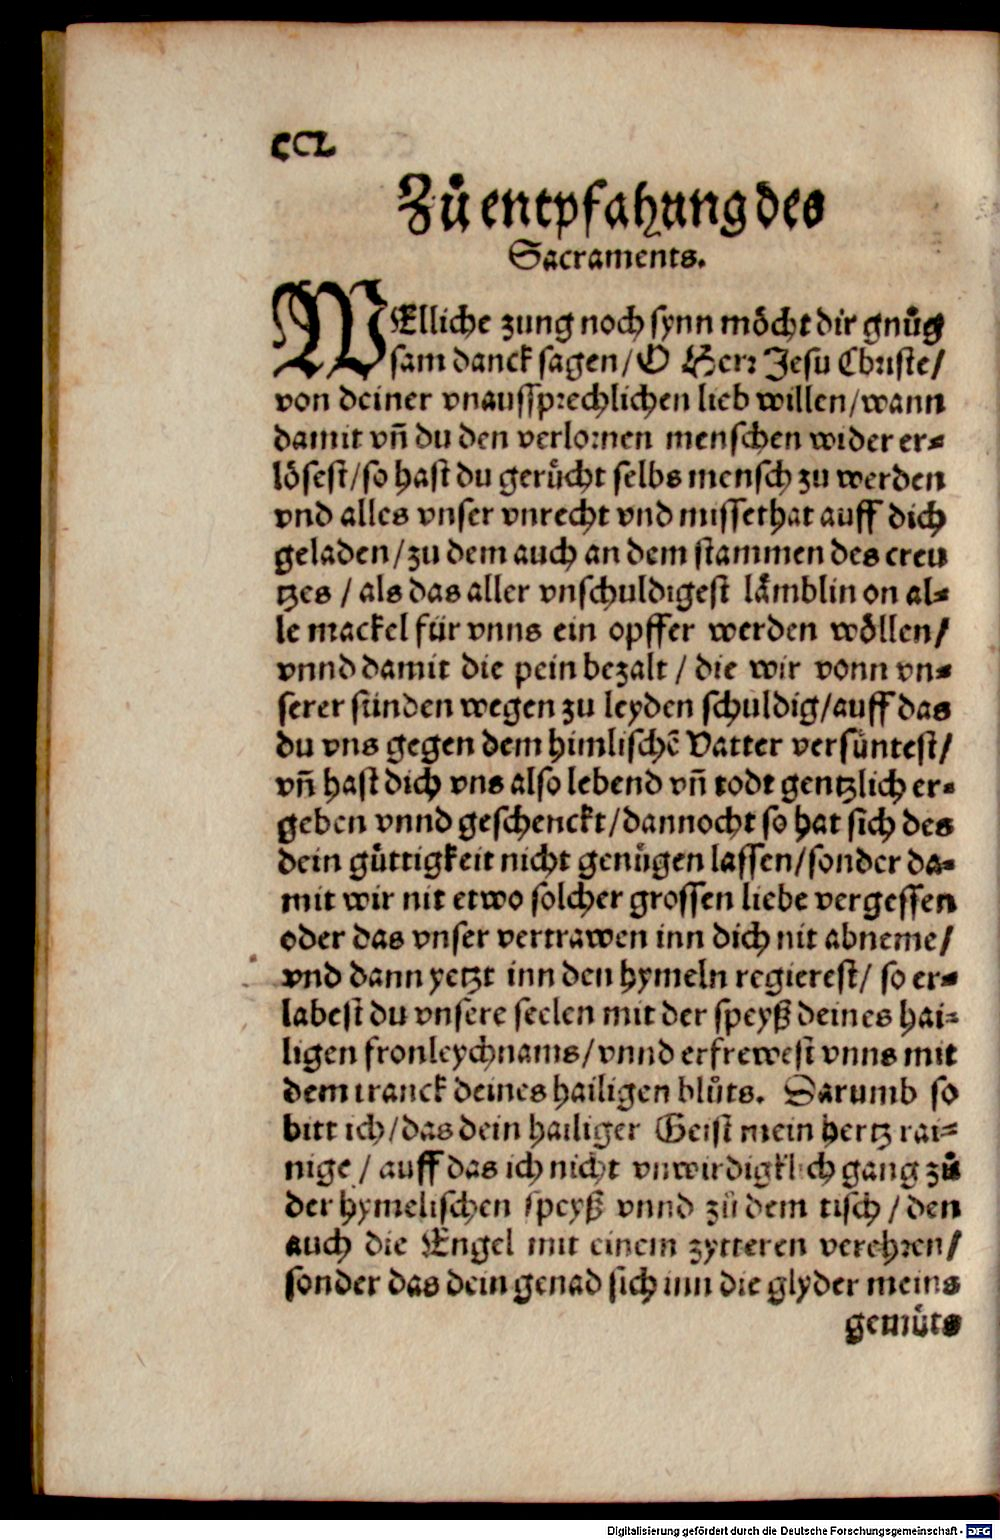 ccl
Zů entpfahung des
Sacraments.
WElliche zung noch synn möcht dir gnůg
sam danck sagen/ O Herr Jesu Christe/
von deiner vnaussprechlichen lieb willen/wann
damit vñ du den verlornen menschen wider er-
lösest/so hast du gerůcht selbs mensch zu werden
vnd alles vnser vnrecht vnd missethat auff dich
geladen/zu dem auch an dem stammen des creu
tzes / als das aller vnschuldigest lämblin on al-
le mackel für vnns ein opffer werden wöllen/
vnnd damit die pein bezalt / die wir vonn vn-
serer sünden wegen zu leyden schuldig/auff das
du vns gegen dem himlischē Vatter versüntest/
vñ hast dich vns also lebend vñ todt gentzlich er-
geben vnnd geschenckt/dannocht so hat sich des
dein gůttigkeit nicht genůgen lassen/sonder da-
mit wir nit etwo solcher grossen liebe vergessen
oder das vnser vertrawen inn dich nit abneme/
vnd dann yetzt inn den hymeln regierest/ so er-
labest du vnsere seelen mit der speyß deines hai-
ligen fronleychnams/vnnd erfrewest vnns mit
dem tranck deines hailigen blůts. Darumb so
bitt ich/das dein hailiger Geist mein hertz rai-
nige / auff das ich nicht vnwirdigklich gang zů
der hymelischen speyß vnnd zů dem tisch / den
auch die Engel mit einem zytteren verehren/
sonder das dein genad sich inn die glyder meins
gemůts
Digitalisierung gefördert durch die Deutsche Forschungsgemeinschaft - DFG